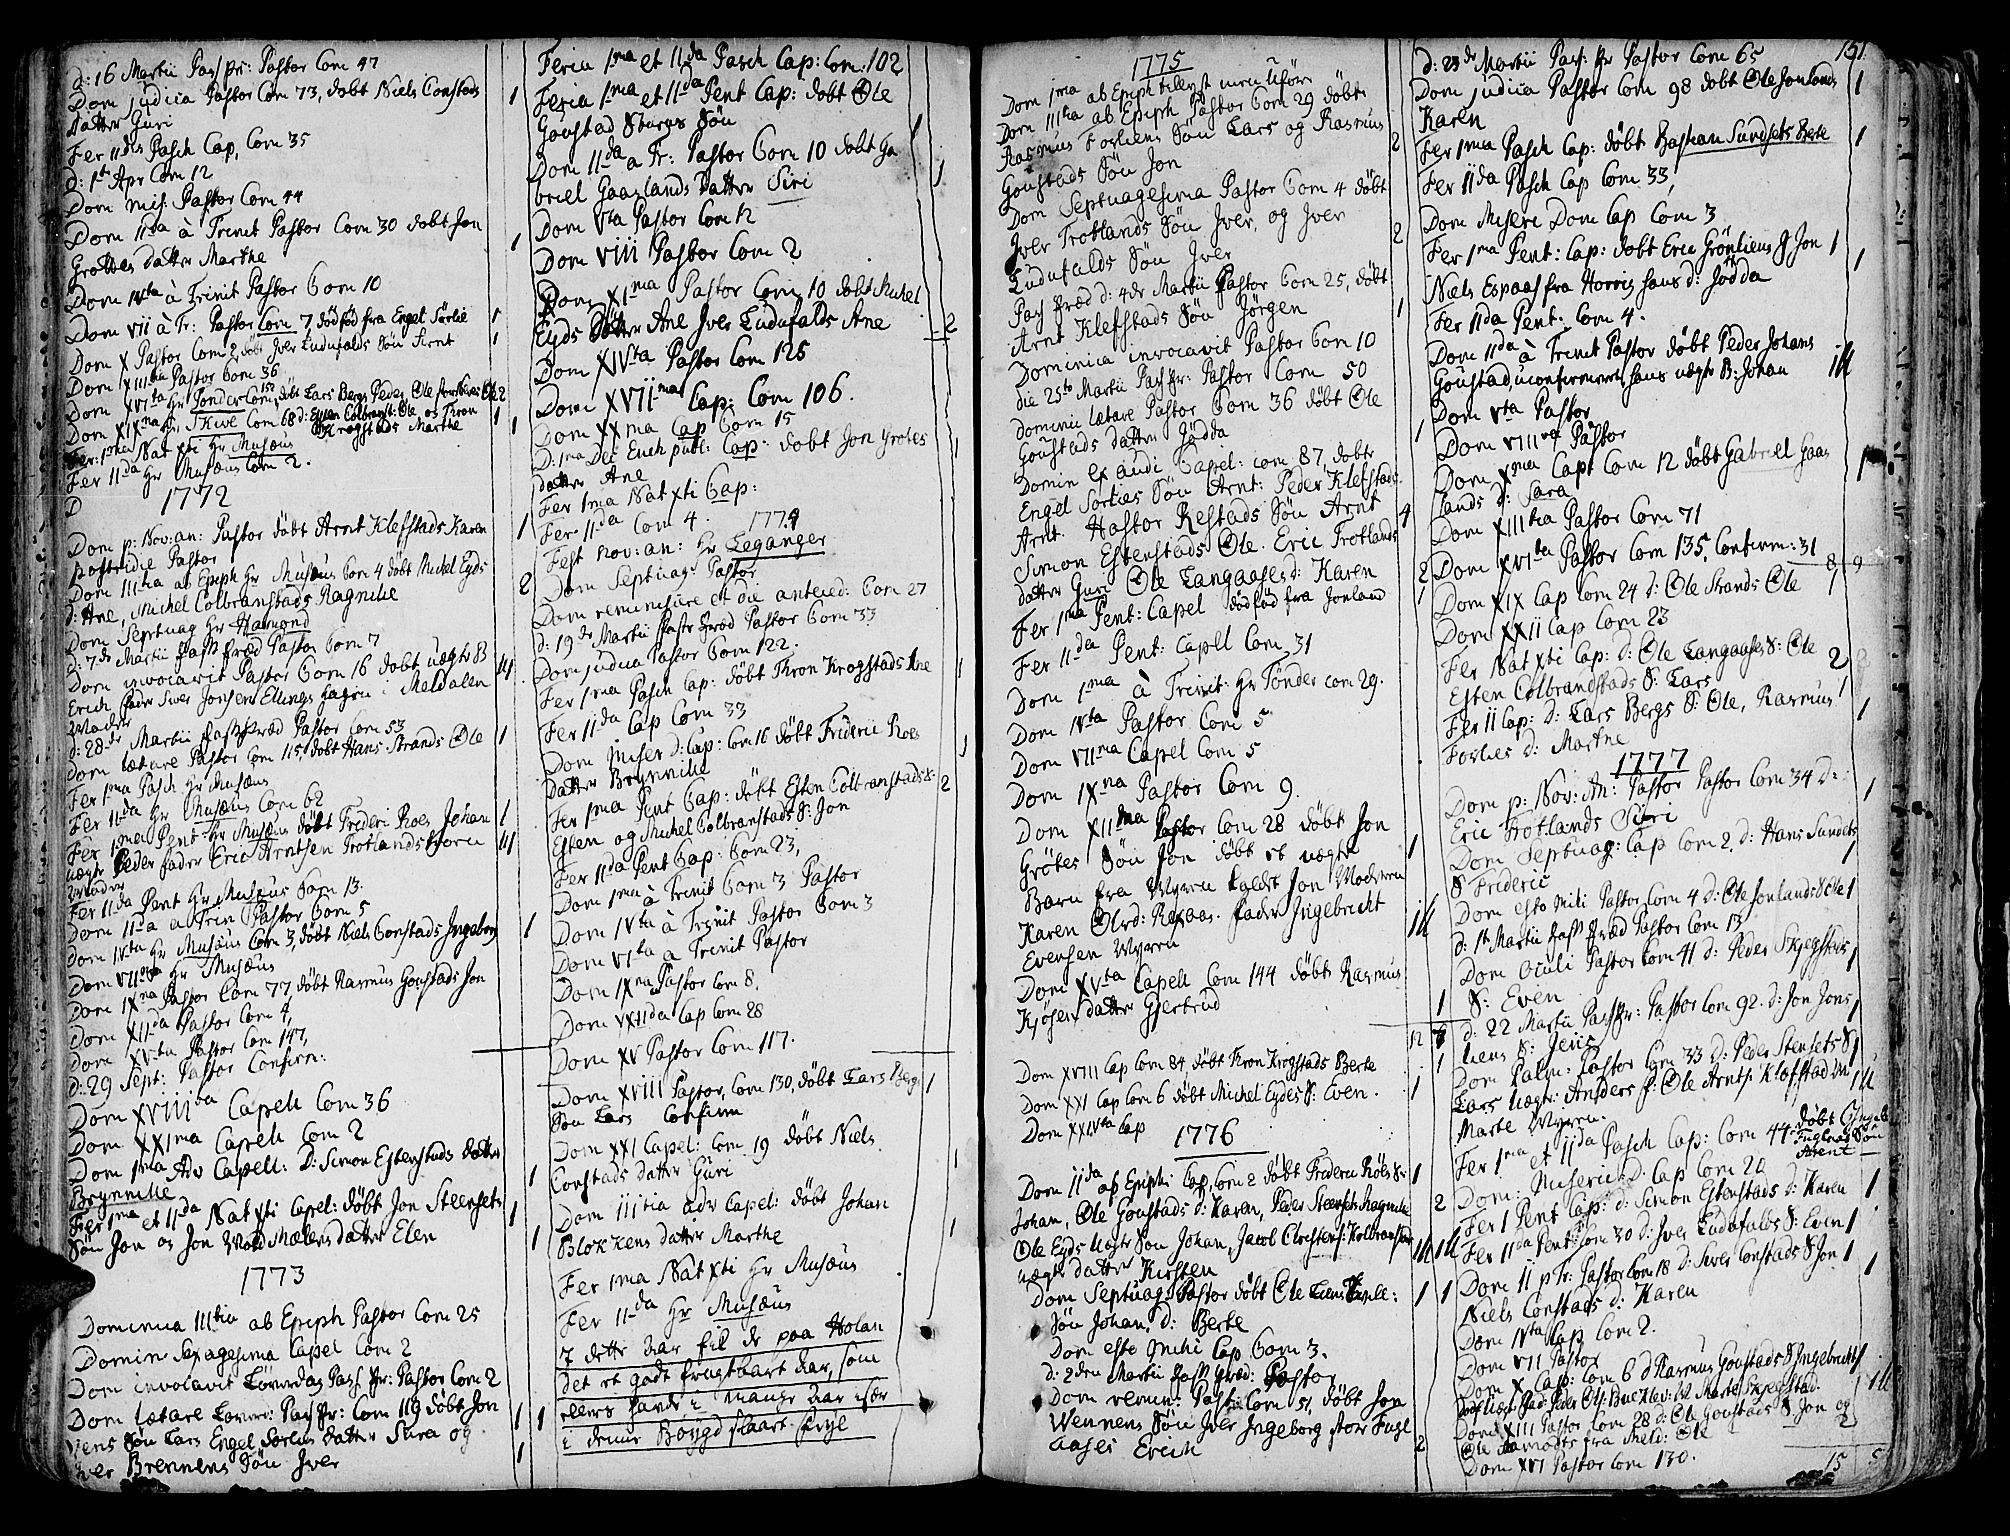 d: 16 Martii Pass pr: Pastor Com 47
Dom judica Pastor Com 73, døbt Niels Constads
datter Guri
Fer 11da Pasch Cap, Com 35
d: 1te Apr Com 12
Dom mis: Pastor Com 44
Dom 11da à Trinit Pastor Com 30 døbt Jon
Grottes datter Marthe
Dom IVta à Trinit Pastor Com 10
Dom VII à Tr: Pastor Com 7 dødfød fra Engel Sørlie
Dom X Pastor Com 2 døbt Iver Ludufalds Søn Arnt
Dom XIIItia Pastor Com 36
Dom XVIta Hr Tønder Com 152 døbt Lars Bergs Peder, Ole
Dom XIXna Hr Skive Com 68 d: Esten Colbranst: Ole og Thron
Krogstads Marthe
Fer: 1ma Nat xti Hr Musæus
Fer 11da Hr Musæus Com 2.
1772
Dom p: Nov: an: Pastor døbt Arnt Klefstads Karen
postridie Pastor
Dom IIItia ab Epiph Hr Musæus Com 4 døbt Michel Eyds
d: Ane, Michel Colbranstads Ragnilie
Dom Septuag Hr Hamond
d: 7de Martii Pass Præd Pastor Com 7
Dom invocavit Pastor Com 16 døbt uægte B
Erich fader Siver Jonsen Ellings hagen i Meldalen
Moder
d: 28de Martii Pass Præd Pastor Com 53
Dom lætare Pastor Com 115, døbt Hans Strands Ole
Fer 1ma Pasch Hr Musæus
Fer 11da Hr Musæus Com 62
Fer 1ma Pent Hr Musæus døbt Frideri Roes Johan
uægte Peder fader Eric Arntsen Trotlandstrøen
Moder
Fer 11da Pent Hr Musæus Com 13.
Dom 11da a Trin Pastor Com 5
Dom IVta Hr Musæus Com 3, døbt Niels Constads Ingeborg
Dom VIIma Hr Musæus
Dom IXna Pastor Com 77, døbt Rasmus Goustads Jon
Dom XIIda Pastor Com 4,
Dom XVta Pastor Com 147,
d: 29 Sept: Pastor Confirm:
Dom XVIIIda Capell Com 36
Dom XXIma Capell Com 2
Dom 1ma Adv Capell: D: Simon Estenstads datter
Brynnilie
Fer 1ma et 11da Nat xti Capel: døbt Jon Steensets
Søn Jon og Jon Mælens datter Elen
1773
Dominica IIItia ab Epiph Pastor Com 25
Domin Sexagesima Capel Com 2
Dom invocavit Løverdag Pass Pr: Pastor Com 2
Dom lætare Løver: Pass Pr: Com 119 døbt Jon
Liens Søn Lars Engel Sørlies datter Siura og
Iver Brennens Søn Iver
Feria 1ma et 11da Pasch Cap: Com: 102
Feria 1ma et 11da Pent Cap: døbt Ole
Goustad Søn
Dom 11da a Tr: Pastor Com 10 døbt Ga
briel Gaaslands datter Siri
Dom Vta Pastor Com 12
Dom VIII Pastor Com 2
Dom XIma Pastor Com 10 døbt Michel
Eyds datter Ane Iver Ludufalds Ane
Dom XIVta Pastor Com 125
Dom XVIIma Cap: Com 106.
Dom XXma Cap Com 15
D: 1ma Dec Euch publ: Cap: døbt Jon Grotes
datter Ane
Fer 1ma Nat xti Cap:
Fer 11da Com 4.
1774
Fest nov: an: Hr Leganger
Dom Septuag: Pastor
Dom reminiscere et die anteced: Com 27
d: 19de Martii Pass Præd Pastor Com 33
Dom judica Pastor Com 122.
Fer 1ma Pasch Cap: døbt Thron Krogstads Ane
Fer 11da Cap Com 33
Dom Miser d: Cap: Com 16 døbt Frideric Roes
Datter Brynnilie
Fer 1ma Pent Cap: døbt Esten Colbranstads S:
Esten og Michel Colbranstads S: Jon
Fer 11da Pent Cap: Com 23,
Dom 1ma à Trinit Com 3 Pastor
Dom IVta à Trinit Pastor Com 3
Dom VIta à Trinit Pastor
Dom IXna Pastor Com 8,
Dom XIIda Cap Com 28
Dom XV Pastor Com 117.
Dom XVIII Pastor, Com 130, døbt Lars Bergs
Søn Lars Confirm
Dom XXI Capel: Com 19 døbt Niels
Constads datter Guri
Dom IIItia adv Capel: døbt Johan
Blokkens datter Marthe
Fer 1ma Nat xti Hr Musæus
Fer 11da Hr Musæus
I dette aar fik de paa Holan
det et godt frugtbart aar, som
ellers havde i mange aar især
i denne Bøygd slaaet feyl
1775
Dom 1ma ab Epiph
Dom IIItia ab Epiph Pastor Com 29 døbt
Rasmus Foslies Søn Lars og Rasmus
Goustads Søn Jon
Dom Septuagesima Pastor Com 4 døbt
Iver Trotlands Søn Iver, og Iver
Ludufalds Søn Iver
Pass Præd d: 4de Martii Pastor Com 25, døbt
Arnt Klefstads Søn Jørgen
Dominica invocavit Pastor Com 10
die 25te Martii Pass Pr: Pastor Com 50
Dominic lætare Pastor Com 36 døbt Ole
Goustads datter Gjødda
Domin Exaudi Capel: com 87, døbt
Engel Sorlies Søn Arnt: Peder Klefstads
Arnt. Hastor Restads Søn Arnt
Simon Estenstads Ole. Eric Trotlands
datter Guri Ole Langaases d: Karen
Fer 1ma Pent: Capel dødfød fra Jonland
Fer 11da Pent: Capell Com, 31
Dom 1ma à Trinit: Hr Tønder com 29.
Dom IVta Pastor Com 5
Dom VIIma Capel Com 5
Dom IXna Pastor Com 9.
Dom XIIma Pastor Com 28 døbt Jon
Grøtes Søn Jon døbt et uægte
Barn fra Myren kaldet Jon Moderen
Karen Olsd: Refaas. fader Ingebricht
Evensen Myren
Dom XVta Capell Com 144 døbt Rasmus
Kjøsen datter Gjertrud
Dom XVIII Cap Com 84, døbt Thron Krogstads Berte
Dom XXI Cap Com 6 døbt Michel Eydes S: Even.
Dom XXIVta Cap
1776
Dom 11da ab Epiph: Cap, Com 2 døbt Frideric Røes S:
Johan, Ole Goustads d: Karen, Peder Steensets Ragnilie
Ole Eyds uægte Søn Johan, Jacob Kolbranstad
uægte datter Kirsten
Dom Septuag: Pastor døbt Ole Liens
Søn Johan, d: Berte
Dom esto mihi Cap Com 3.
d: 2den Martii Pass Præd: Pastor
Dom remin: Past: Com 51, døbt Jon
Wennens Søn Iver Ingeborg stor Fugl
aases Erich
151
d: 23de Martii Pass: Pr Pastor Com 65
Dom judica Pastor Com 98 døbt Ole Jonlands
Karen
Fer 1ma Pasch Cap: døbt Bastian Sundsets Berte
Fer 11da Pasch Cap Com 33,
Dom Miseri Dom Cap Com 3
Fer 1ma Pent: Cap: døbt Eric Grønliens S Jon
Niels Espaas fra Horrig hans d: Jødda
Fer 11da Pent: Com 4.
Dom 11da à Trinit Pastor døbt Peder Johans
Goustad, uconfirmeret hans uægte B: Johan
Dom Vta Pastor
Dom VIIIva Pastor
Dom Xma Capt Com 12 døbt Gabriel Gaas
lands d: Sara
Dom XIIItia Pastor Com 71
Dom XVIta Pastor Com 135, Confirm: 31
Dom XIX Cap Com 24 d: Ole Strands Ole
Dom XXII Cap Com 23
Fer Nat xti Cap: d: Ole Langaases S: Ole
Esten Colbrandstads S: Lars
Fer 11 Cap: d: Lars Bergs S: Ole, Rasmus
Foslies d: Marthe
1777
Dom p: Nov: An: Pastor Pastor Com 34 D:
Eric Trotlands Siri
Dom Septuag: Cap Com 2, d: Hans Sundets
S Frideric
Dom esto mihi Pastor Com 4 d: Ole Jonlands Ole
d: 1te Martii Pass Præd Pastor Com 13
Dom Oculi Pastor Com 41 d: Peder Skjegstads
S: Even
d: 22 Martii Pass Pr: Pastor Com 92. d: Jon Jons
liens S: Jens
Dom Palm: Pastor Com 33 D: Peder Stensets S
Lars uægte: Anders f: Ole Arnts: Kløfstad M
Marte Myren.
Fer 1ma et 11da Pasch Cap: Com 44 døbt
Fuglaas Søn
Arent
Dom: Misericord: Cap Com 20
Fer 1 Pent Cap: d: Simon Estenstads d: Karen
Fer 11da Pent: Com 30 d: Iver Ludufalds S: Even
Dom 11 p Tr: Pastor Com 18 d: Siver Constads S Jon
Niels Constads d: Karen
Dom IVta Cap Com 2.
Dom VII Pastor
Dom X Cap: Com 6 d Rasmus Goustads S Ingebricht
Dom XIII Pastor Com 28 d: Ole Goustads S Jon og
Ole fra Meld: Ole
Dom XVI Pastor Com 130.
15 5